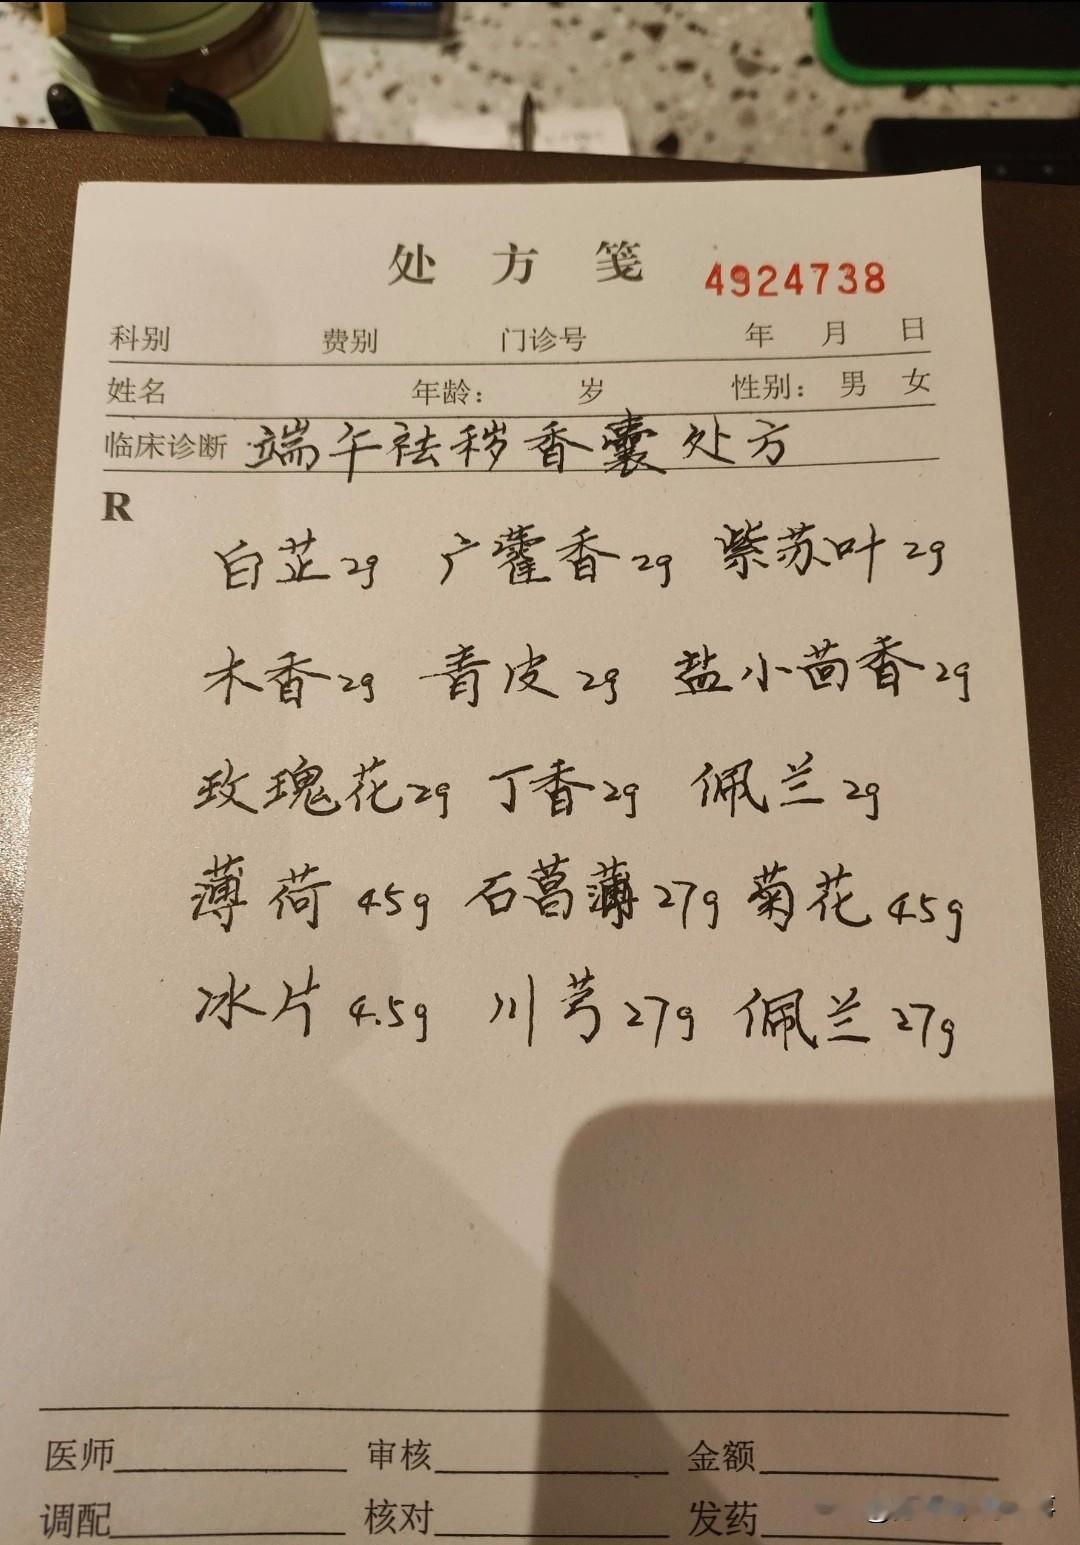 处方笺 4924738
科别 费别 门诊号 年 月 日
姓名 年龄: 岁 性别: 男 女
临床诊断 端午祛秽香囊处方
R
白芷2g 广藿香2g 紫苏叶2g
木香2g 青皮2g 盐小茴香2g
玫瑰花2g 丁香2g 佩兰2g
薄荷45g 石菖薄27g 菊花45g
冰片4.5g 川芎27g 佩兰27g
医师 审核 金额
调配 核对 发药